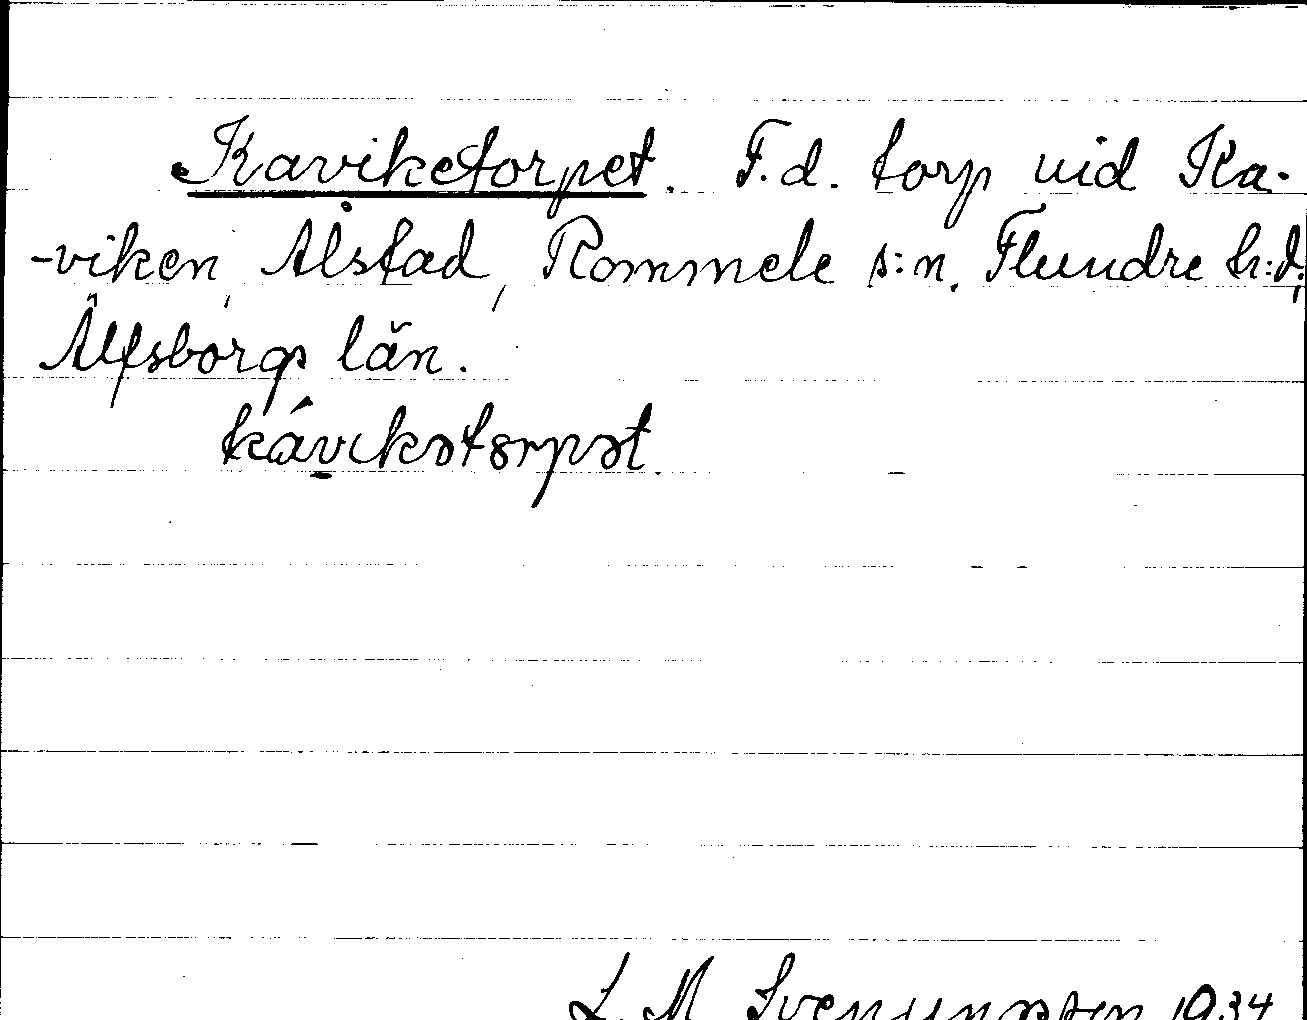 Kaviketorpet. F.d. torp vid Ka-
-viken, Ålstad, Rommele s:n. Flundre h:d;
Älfsborgs län.
kávikətɔrpət
L. M. Svenungsson 1934